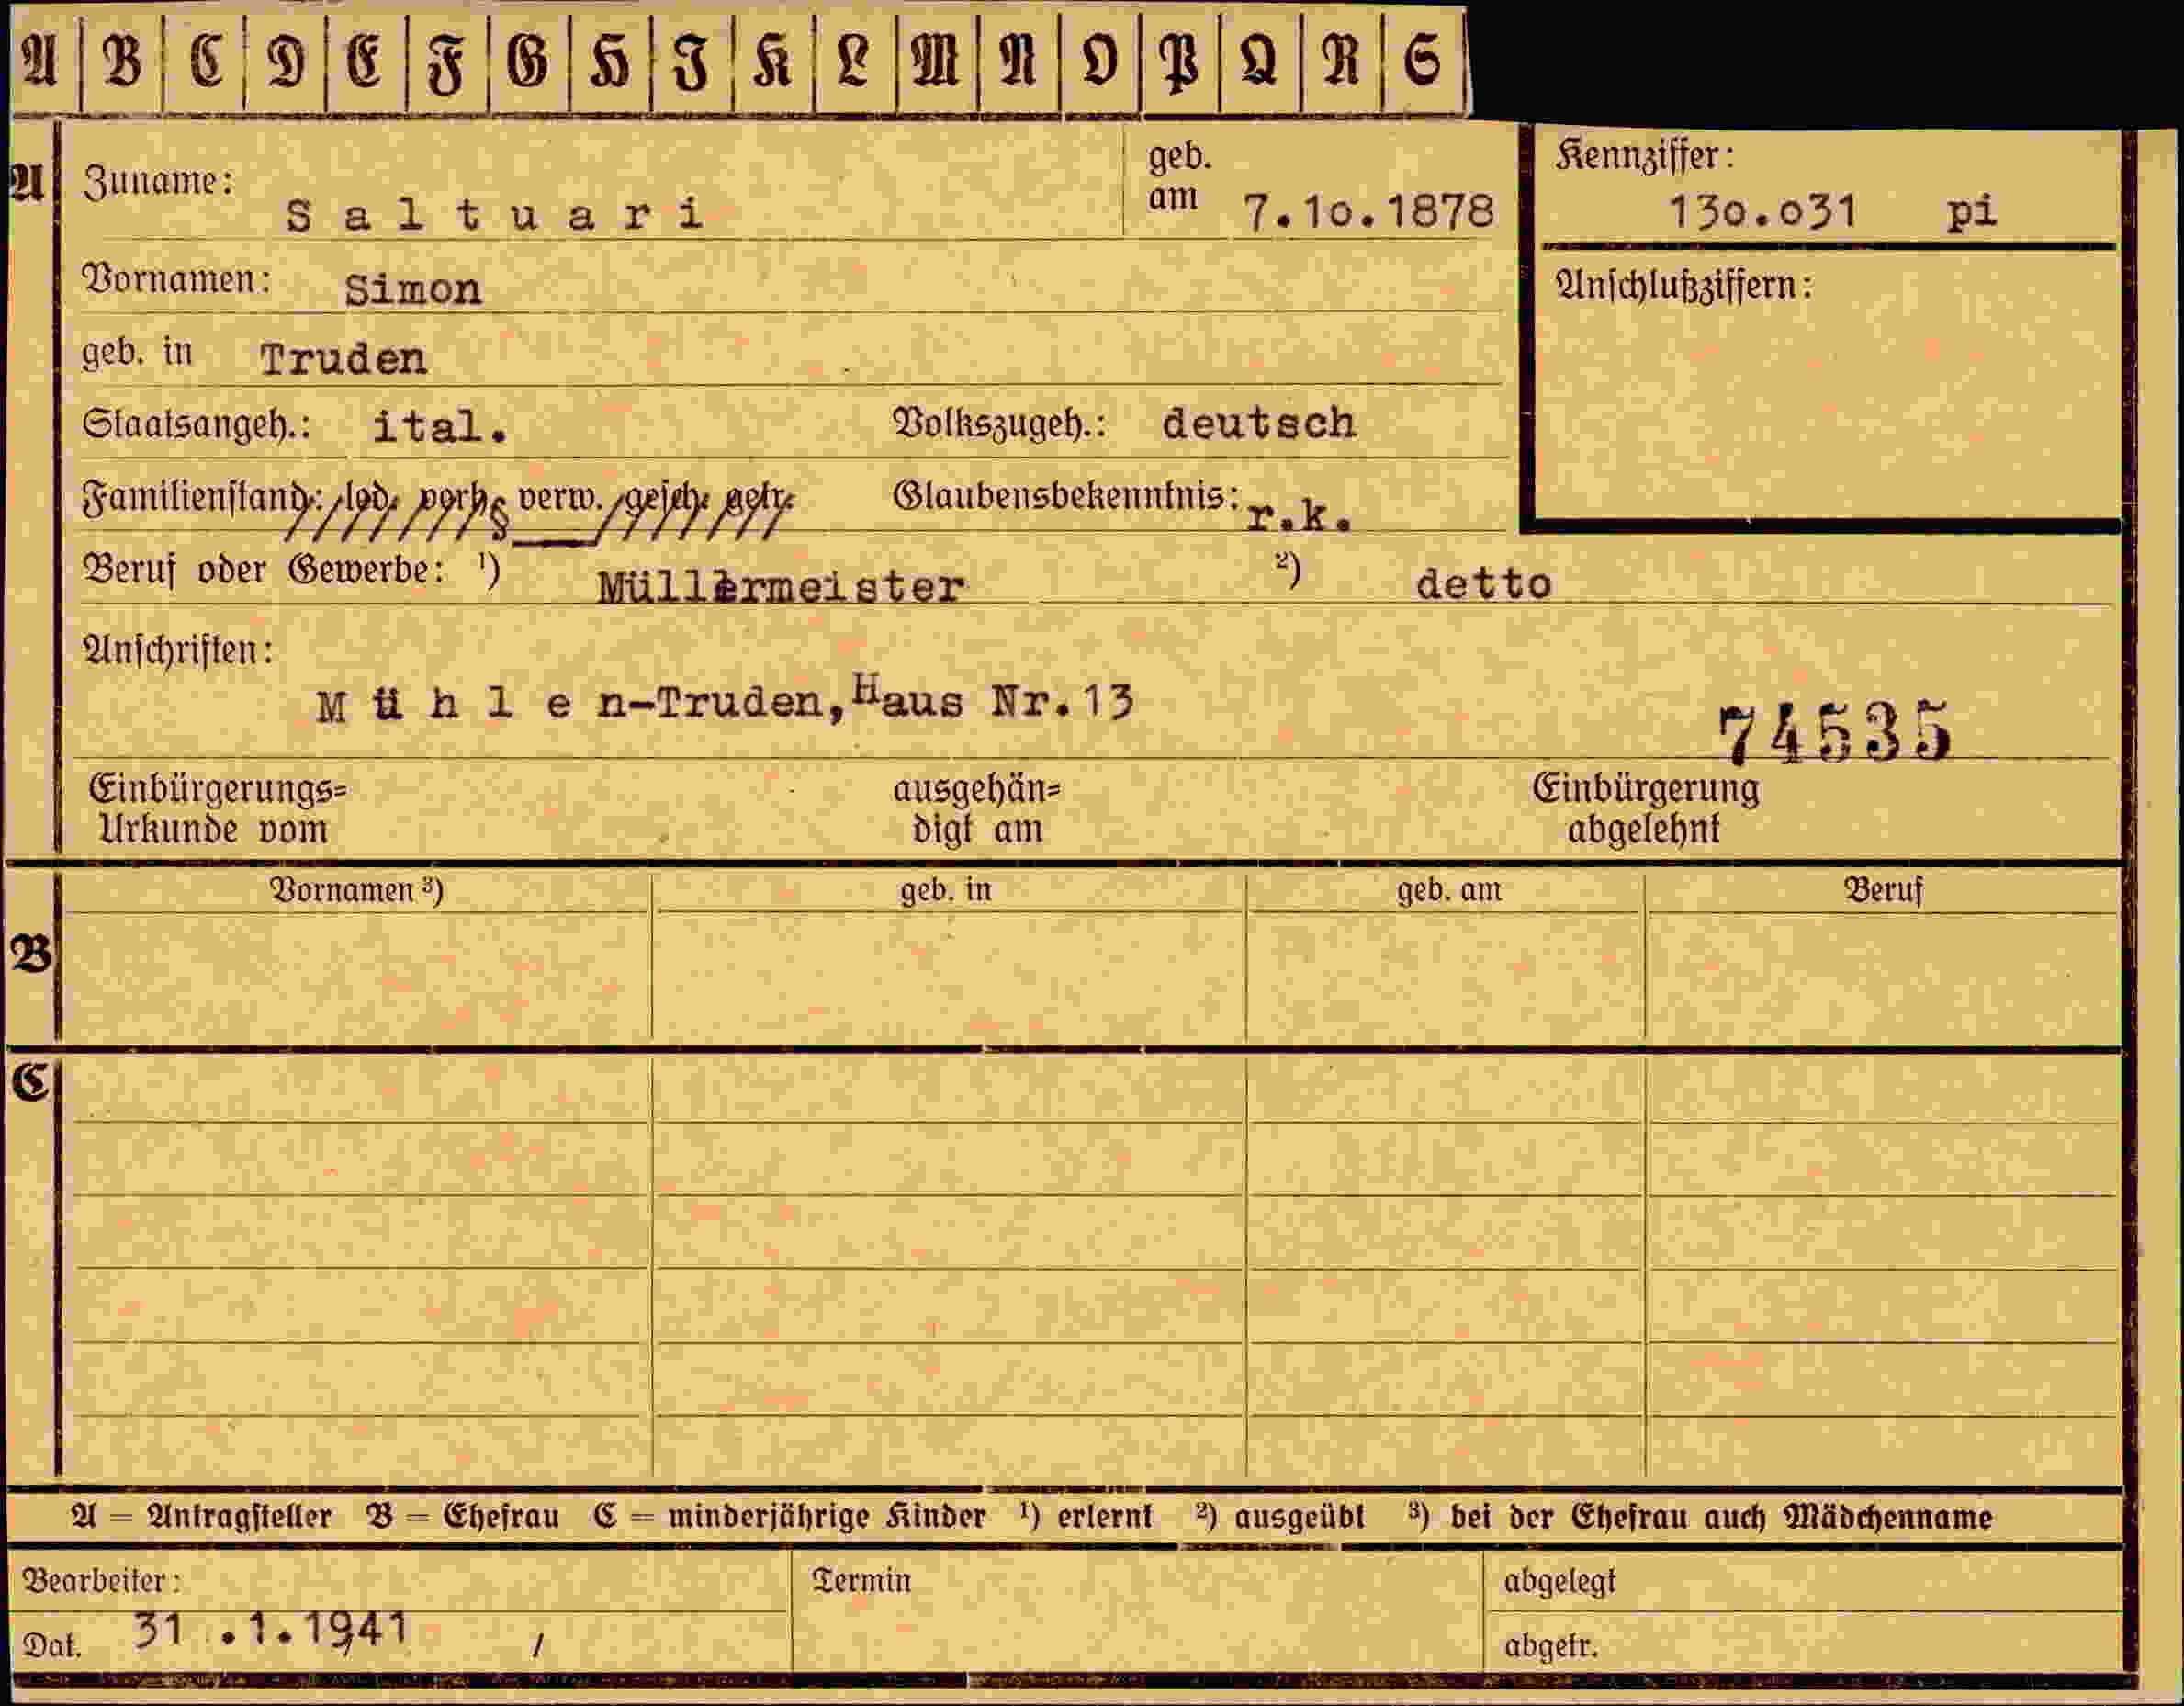 A B C D E F G H I K L M N O P Q R S
A Zuname: Saltuari geb. am 7.10.1878
Kennziffer: 130.031 pi
Vornamen: Simon
Anschlußziffern:
geb. in Truden
Staatsangeh.: ital. Volkszugeh.: deutsch
Familienstand: led. verh. verw. gesch. getr. Glaubensbekenntnis: r.k.
Beruf oder Gewerbe: ¹) Müllermeister ²) detto
Anschriften:
Mühlen-Truden, Haus Nr.13
74535
Einbürgerungs= ausgehän= Einbürgerung
Urkunde vom digt am abgelehnt
Vornamen ³) geb. in geb. am Beruf
B
C
A = Antragsteller B = Ehefrau C = minderjährige Kinder ¹) erlernt ²) ausgeübt ³) bei der Ehefrau auch Mädchenname
Bearbeiter: Termin abgelegt
Dat. 31.1.1941 / abgetr.